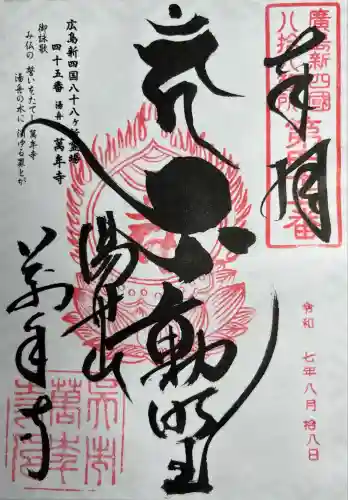 廣島新四國
八拾八ヶ所第四十五番
奉拝
広島新四国八十八ヶ所霊場
四十五番 湯舟 萬年寺
御詠歌
み仏の 誓いをたてし 萬年寺
湯舟の水に 消ゆる罪とが
不動明王
湯舟山
萬年寺
令和 七年八月拾八日